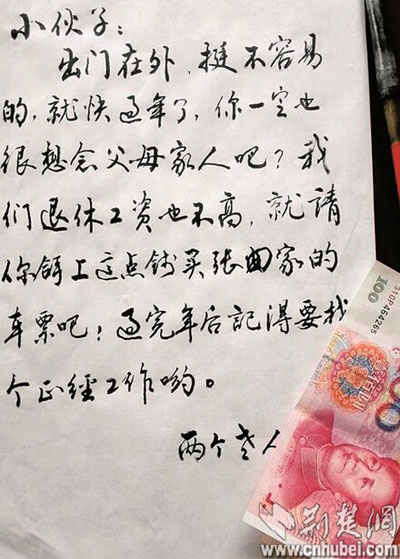 小伙子：
出门在外，挺不容易
的，就快过年了，你一定也
很想念父母家人吧？我
们退休工资也不高，就请
你拿上这点钱买张回家的
车票吧！过完年后記得要找
个正經工作哟。
两个老人
100
STOP464265
100
荆楚網
www.cnhubei.com